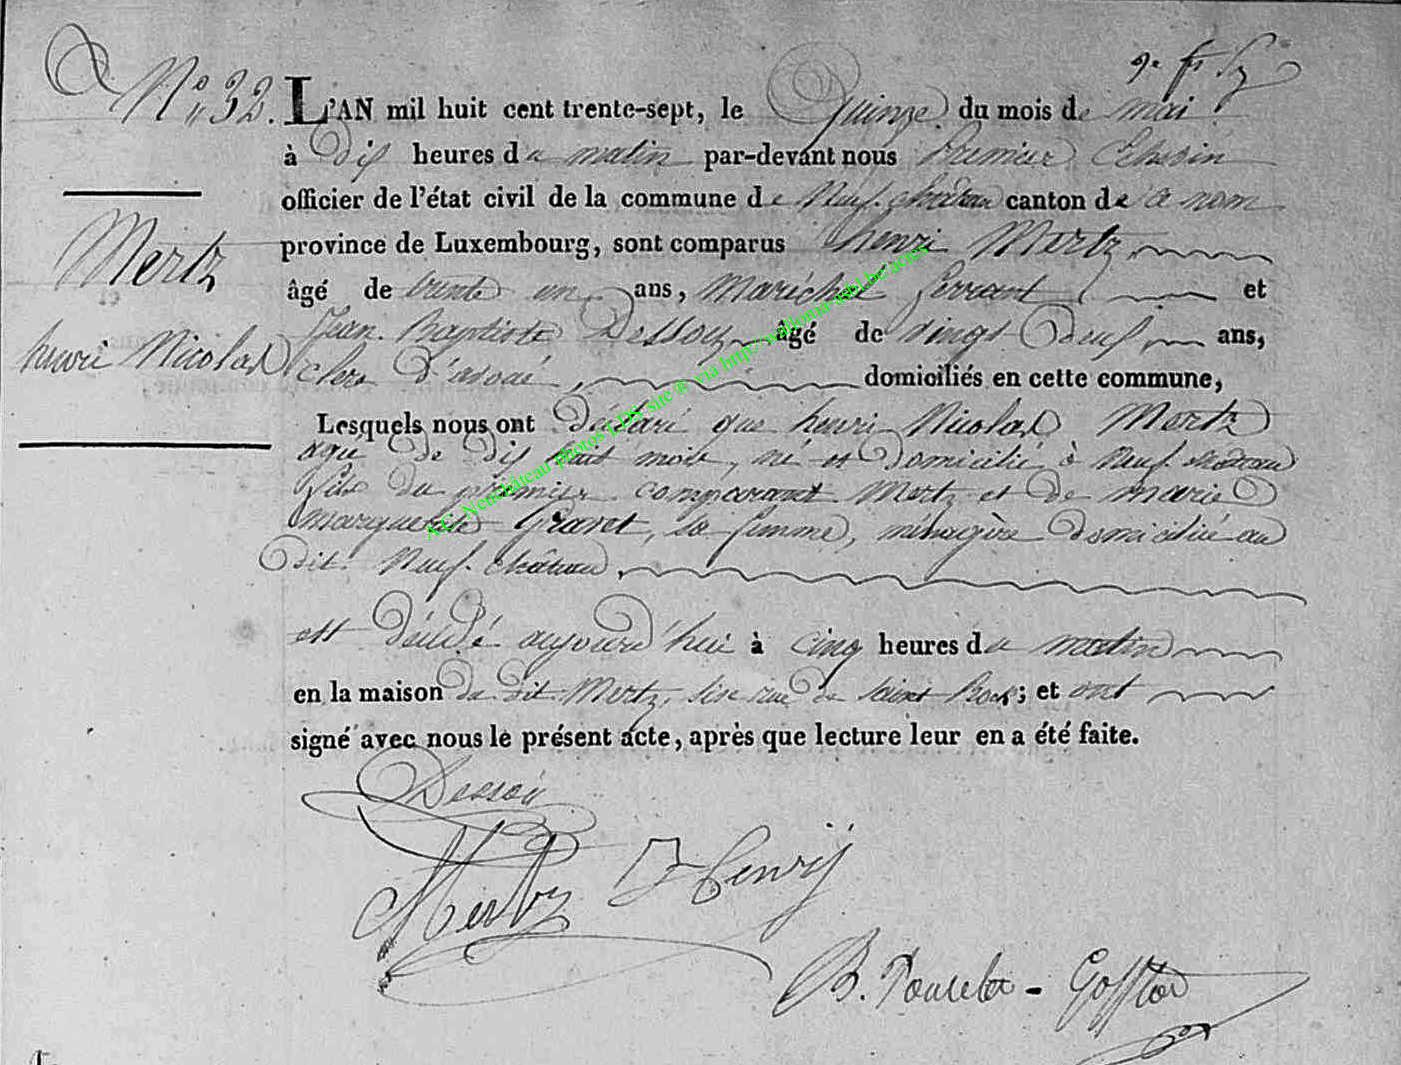 N° 32. L'AN mil huit cent trente-sept, le Quinze du mois de mai
à Dix heures du matin par-devant nous Premier Echevin
officier de l'état civil de la commune de Neuf-château canton de ce nom
province de Luxembourg, sont comparus henri Mertz,
âgé de trente un ans, Maréchal ferrant et
Jean Baptiste Dessoy âgé de vingt Neuf ans,
clerc d'avoué, domiciliés en cette commune,
Mertz
henri Nicolas
Lesquels nous ont Déclaré que henri Nicolas Mertz
agé de dix huit mois, né et Domicilié à Neuf-château
fils du premier comparant Mertz et de marie
marguerite Gravet, sa femme, ménagère domiciliée au
dit Neuf-château,
est décédé aujourd'hui à cinq heures du matin
en la maison du dit Mertz, sise rue de saint Roch; et ont
signé avec nous le présent acte, après que lecture leur en a été faite.
Dessoy
Mertz Henrÿ
B. Poncelet - Gofflot
AC Neufchâteau photos LDS site ® via http://wallonia-asbl.be/actes